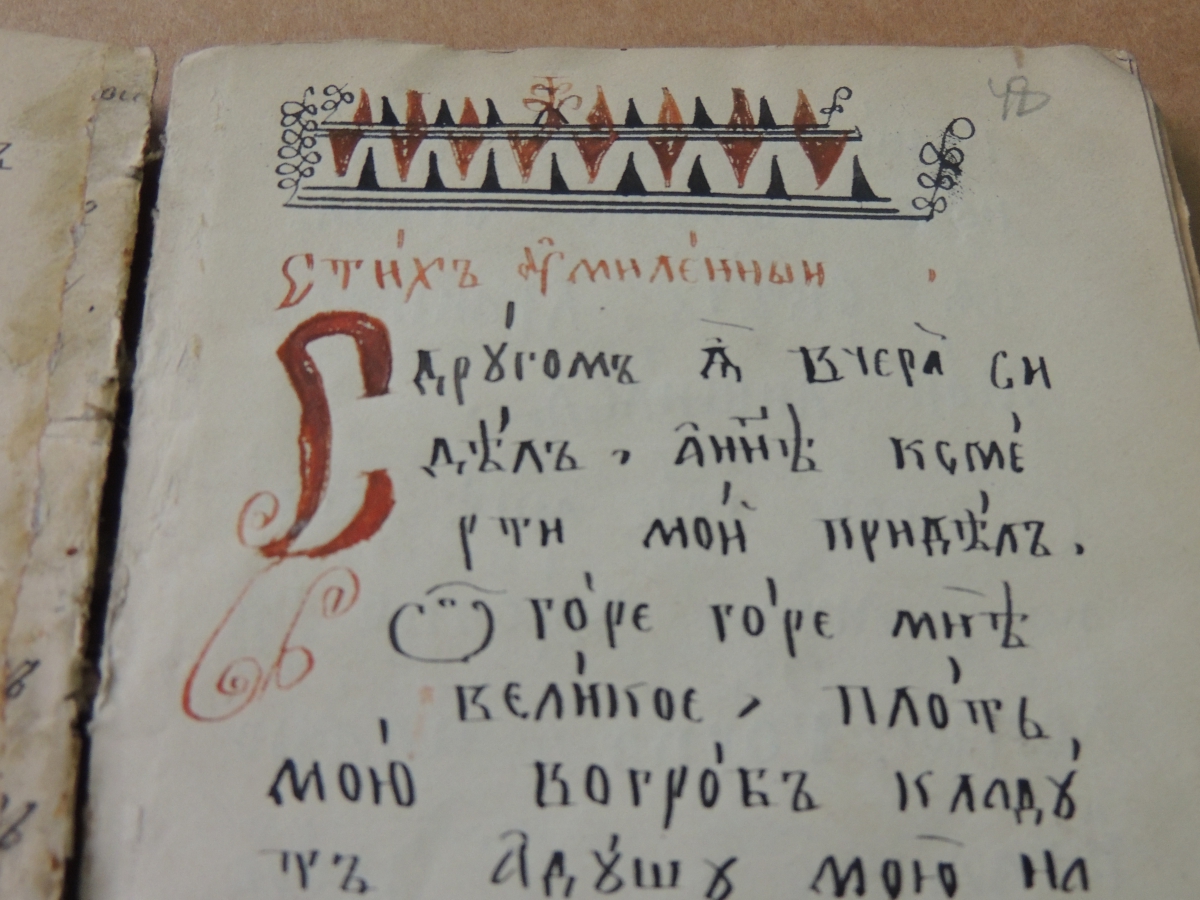 48
Стꙋ́хъ ᲂумиле́нныи
Съ другомъ ꙗ҆ вчера̀ си
дѣ́лъ, а҆ нн҃ѣ ксме́
рти мое́й придѣ́лъ.
Ѽ го́ре го́ре мнѣ̀
вели́кое, пло́ть
мою́ вогро́бъ кладу́
тъ а҆ду́шу мою̀ на